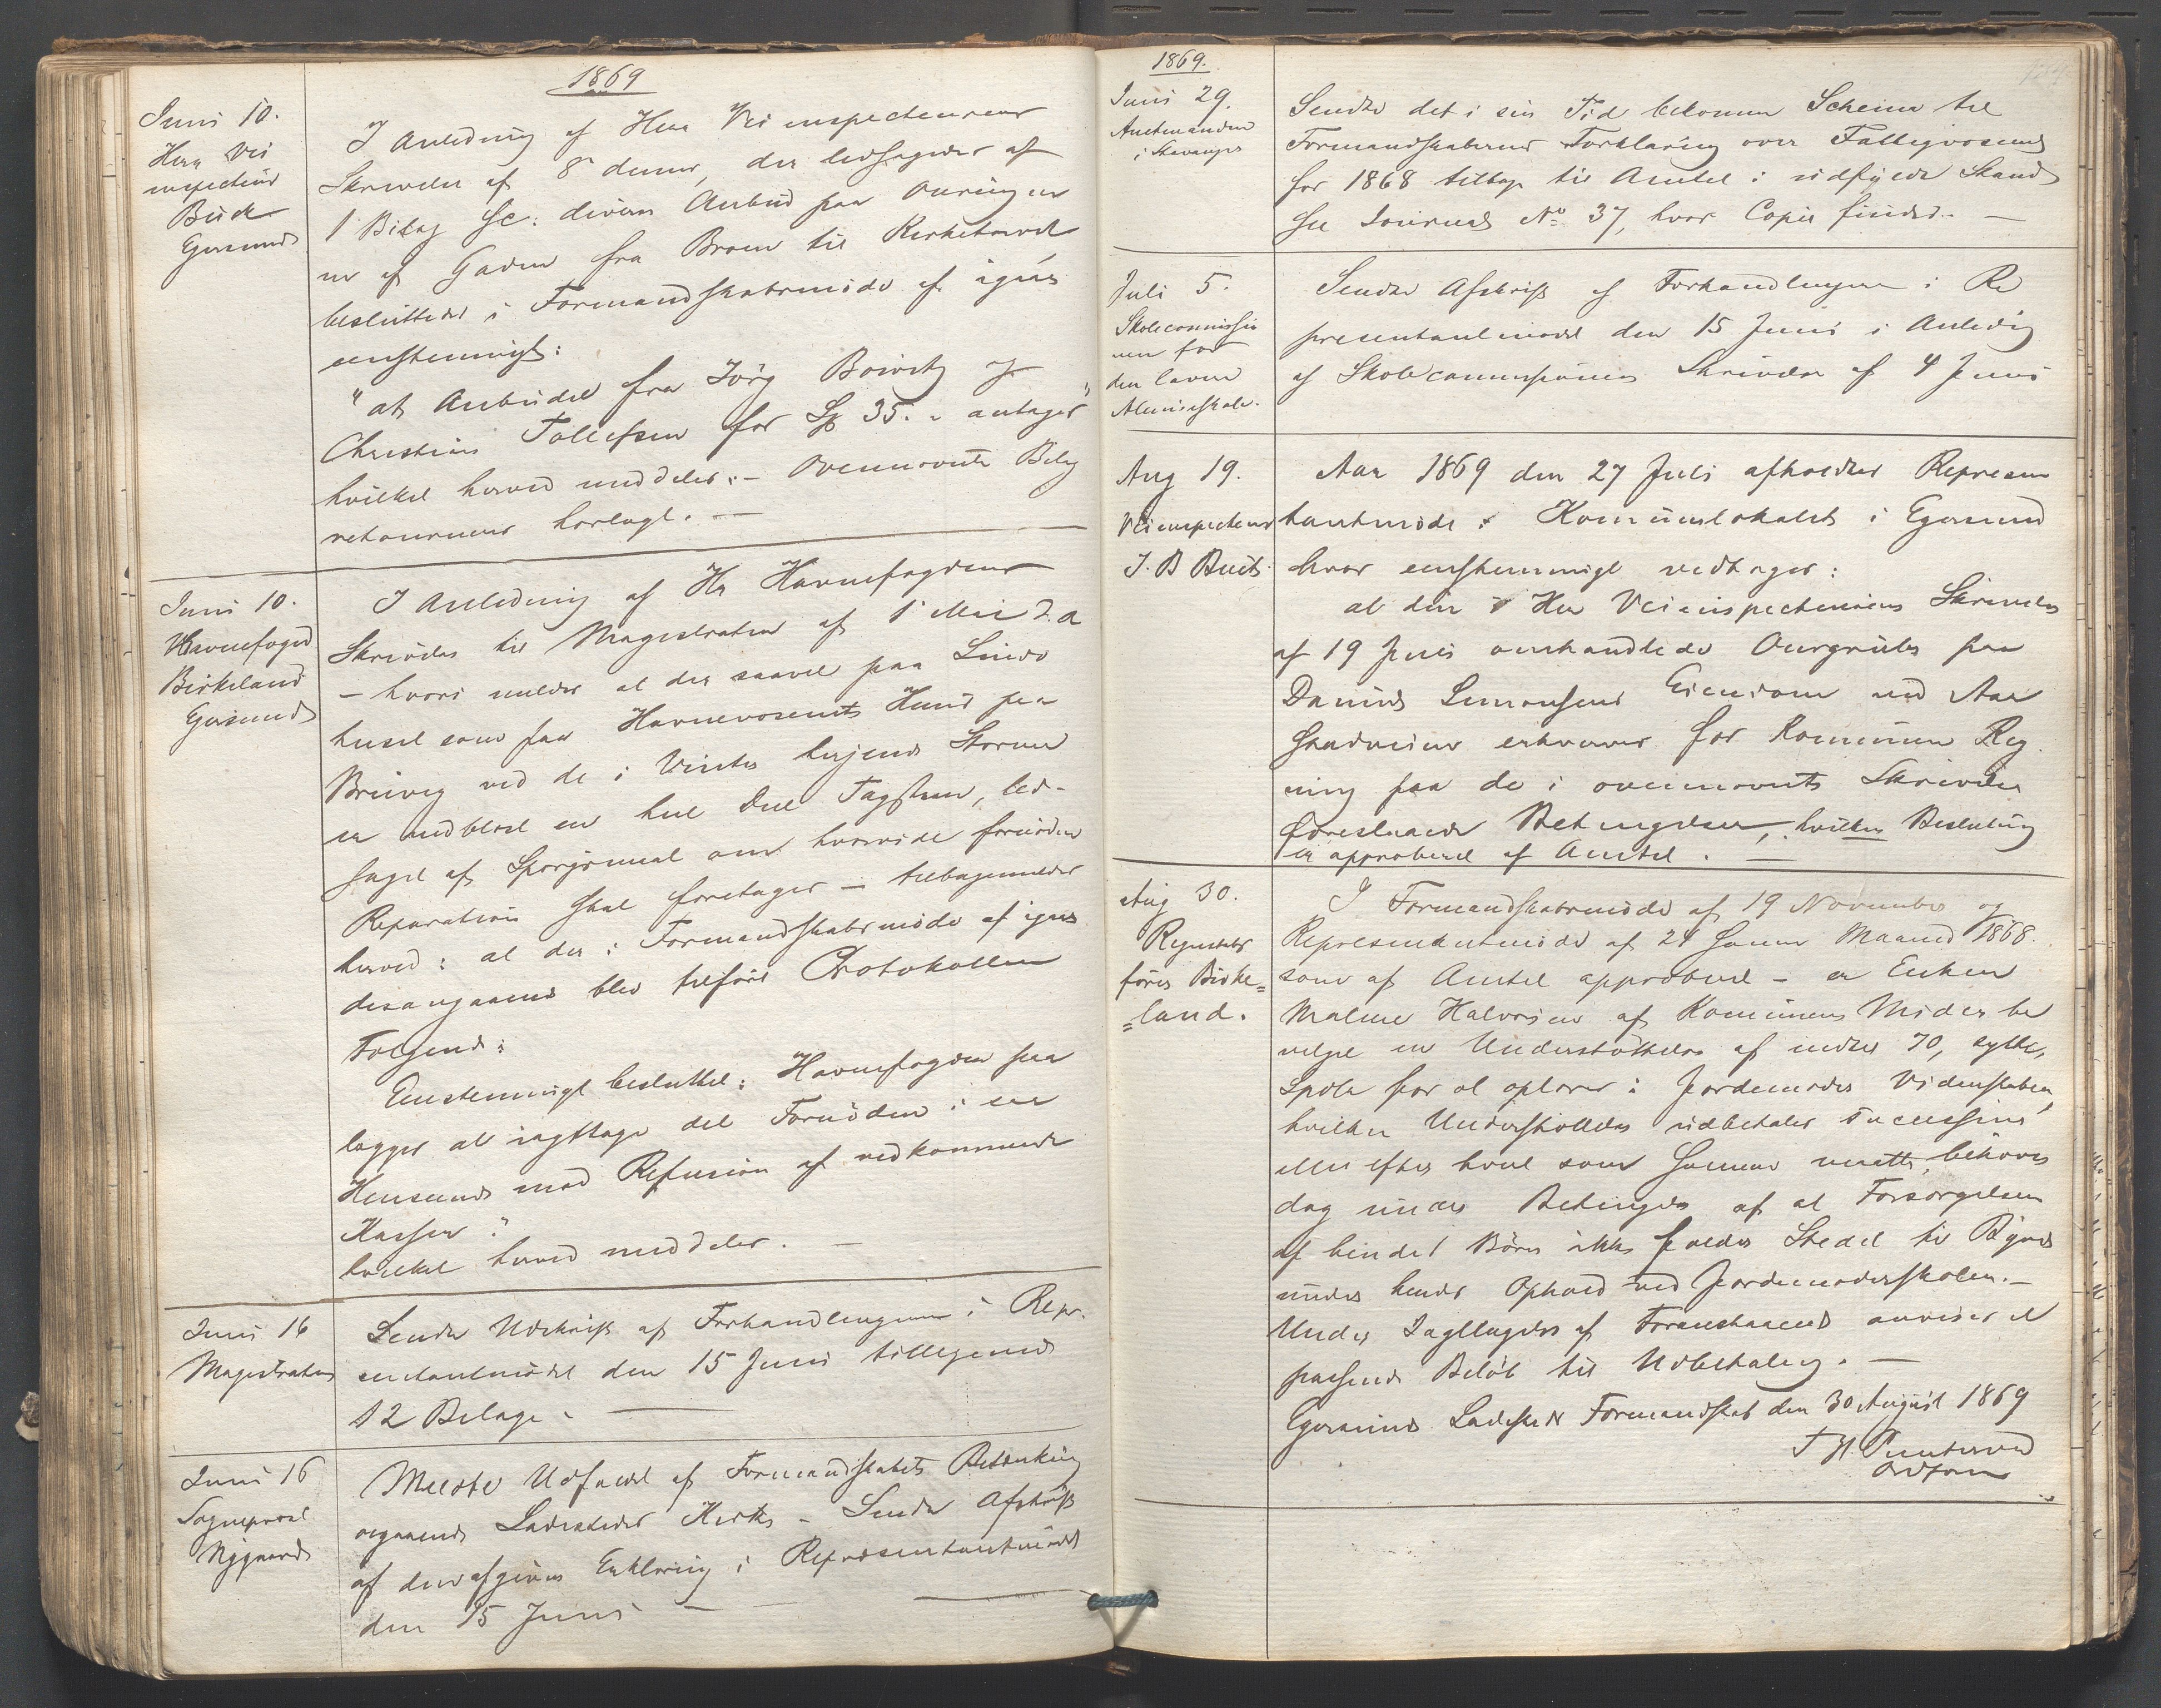 1869
Juni 10.
Herr Vei
inspecteur
Buch
Egersund
I Anledning af Herr Veiinspecteurens
Skrivelse af 8 dennes, der ledsagedes af
1 Bilag sc: divers Anbud paa
af Gaden fra Broen til Kirketorvet
besluttedes i Formandskabsmøde af igaar
eenstemmigt:
"at Anbudet fra Jörg og
Christian Tollefsen for Sp 35. antages"
hvilket herved meddeles. – Ovennævnte Bilag
retourneres herlagt. —
Juni 10.
Havnefoged
Birkeland
Egersund
I Anledning af Hr Havnefogdens
Skrivelse til Magistraten af 1 Mai d.a
– hvori meldes at der saavel paa
huset som paa Havnevæsenets Huus paa
ved de i Vinter herjende Storme
er nedblæst en heel Deel Tagsteen, led-
saget af Spørgsmaal om hvorvidt fornøden
Reparation skal foretages – tilbagemeldes
herved: at der i Formandskabsmøde af igaar
desangaaende blev tilført Protokollen
Følgende:
Eenstemmigt besluttet: Havnefogden paa
lægges at iagttage det Fornødne i saa
Henseende mod Refusion af vedkommende
Kasser."
hvilket herved meddeles. —
Juni 16
Magistraten
Sendte Udskrift af Forhandlingerne i Repr.
sentantmødet den 15 Juni tilligemed
12 Bilage. —
Juni 16
Sogneprest
Nygaard
Meldte Udfaldet af Formandskabets Betænkning
angaaende Ladestedets Kirke – Sendte Afskrift
af den afgivne Erklæring i Repræsentantmødet
den 15 Juni —
1869.
Juni 29.
Amtmanden
i Stavanger
Sendte det i sin Tid bekomne Schema til
Formandskabernes Forklaring over Fattigvæsenet
for 1868 tilbage til Amtet i udfyldt Stand
See Journal No 37, hvor Copie findes. —
Juli 5.
Skolecommissio
nen for
den lavere
Almueskole.
Sendte Afskrift af Forhandlingerne i Re
presentantmødet den 15 Juni i Anledning
af Skolecommissionens Skrivelse af 4 Juni
Aug 19.
Veiinspecteur
J. B Buch
Aar 1869 den 27 Juli afholdtes Represen
tantmøde i Kommunelokalet i Egersund
hvor eenstemmigt vedtoges:
at den i Herr Veiinspecteurens Skrivelse
af 19 Juli omhandlede Øurgrube paa
Simonsens Eiendom ved Aar
stadveien erhverves for Kommunens Reg
ning paa de i ovennævnte Skrivelse
foreslaaede Betingelser, hvilken Beslutning
er approberet af Amtet. —
Aug 30.
Regnskabs
fører Birke=
=land.
I Formandskabsmøde af 19 November og
Representantmøde af 24 samme Maaned 1868.
som af Amtet approberet – er Enken
Malene Halvorsen af Kommunens Midler be
vilget en Understøttelse af indtil 70, sytti,
Spdlr for at oplæres i Jordemoder Videnskaben,
hvilken Understøttelse udbetales successive
eller efter hvert som samme maatte behøves
dog under Betingelse af at Forsørgelsen
af hendes Børn ikke falder Stedet til Byrde
under hendes Ophold ved Jordemoderskolen. –
Under Iagttagelse af Foranstaaende anvises et
passende Beløb til Udbetaling. —
Egersunds Ladesteds Formandskab den 30 August 1869
T H. Puntervold
Ordfører